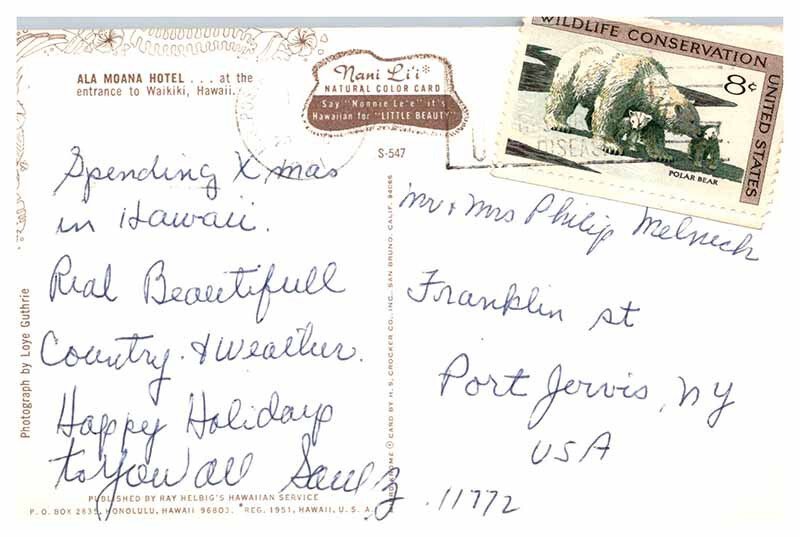 ALA MOANA HOTEL . . . at the
entrance to Waikiki, Hawaii.
Nani Li'i*
NATURAL COLOR CARD
Say "Nonnie Le'e" it's
Hawaiian for "LITTLE BEAUTY"
S-547
WILDLIFE CONSERVATION
UNITED STATES
8¢
POLAR BEAR
DISEASE
Spending Xmas
in Hawaii.
Real Beautifull
Country & Weather.
Happy Holidays
to You all
Mr & Mrs Philip Melnick
Franklin st
Port Jervis, NY
USA
11772
Photograph by Loye Guthrie
CARD BY H. S. CROCKER CO., INC., SAN BRUNO, CALIF. 94066
PUBLISHED BY RAY HELBIG'S HAWAIIAN SERVICE
P. O. BOX 2835, HONOLULU, HAWAII 96803. *REG. 1951, HAWAII, U. S. A.